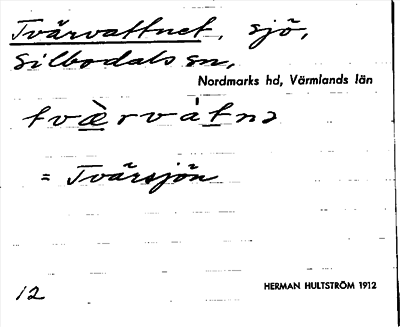 Tvärvattnet, sjö,
Silbodals sn,
Nordmarks hd, Värmlands län
tvæ̀rvàtnə
= Tvärsjön
12
HERMAN HULTSTRÖM 1912